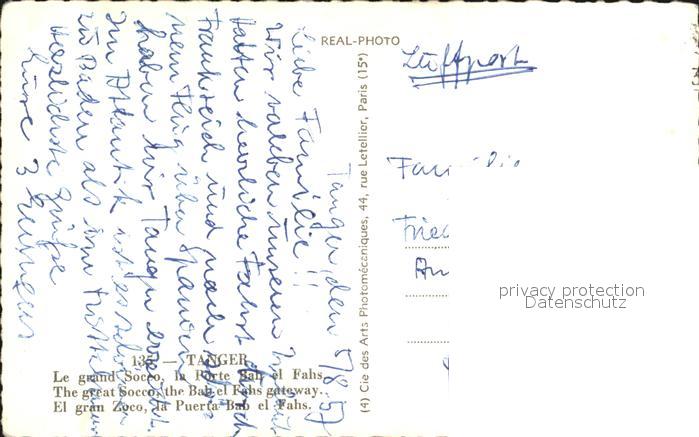 REAL-PHOTO
Luftpost
Tanger, den 5/8.57
Liebe Familie!!
Wir haben unseren
hatten herrliche Fahrt durch
Frankreich und nach
nem Flug über Spanien
haben wir Tanger erreicht.
Im Atlantik ist es schöner
zu Baden als im Mittelmeer
Herzlichste Grüße
Eure 3
Fam
Fried
privacy protection
Datenschutz
(4) Cie des Arts Photomécaniques, 44, rue Letellier, Paris (15e)
TANGER
Le grand Socco, la Porte Bab el Fahs.
The great Socco, the Bab el Fahs gateway.
El gran Zoco, la Puerta Bab el Fahs.